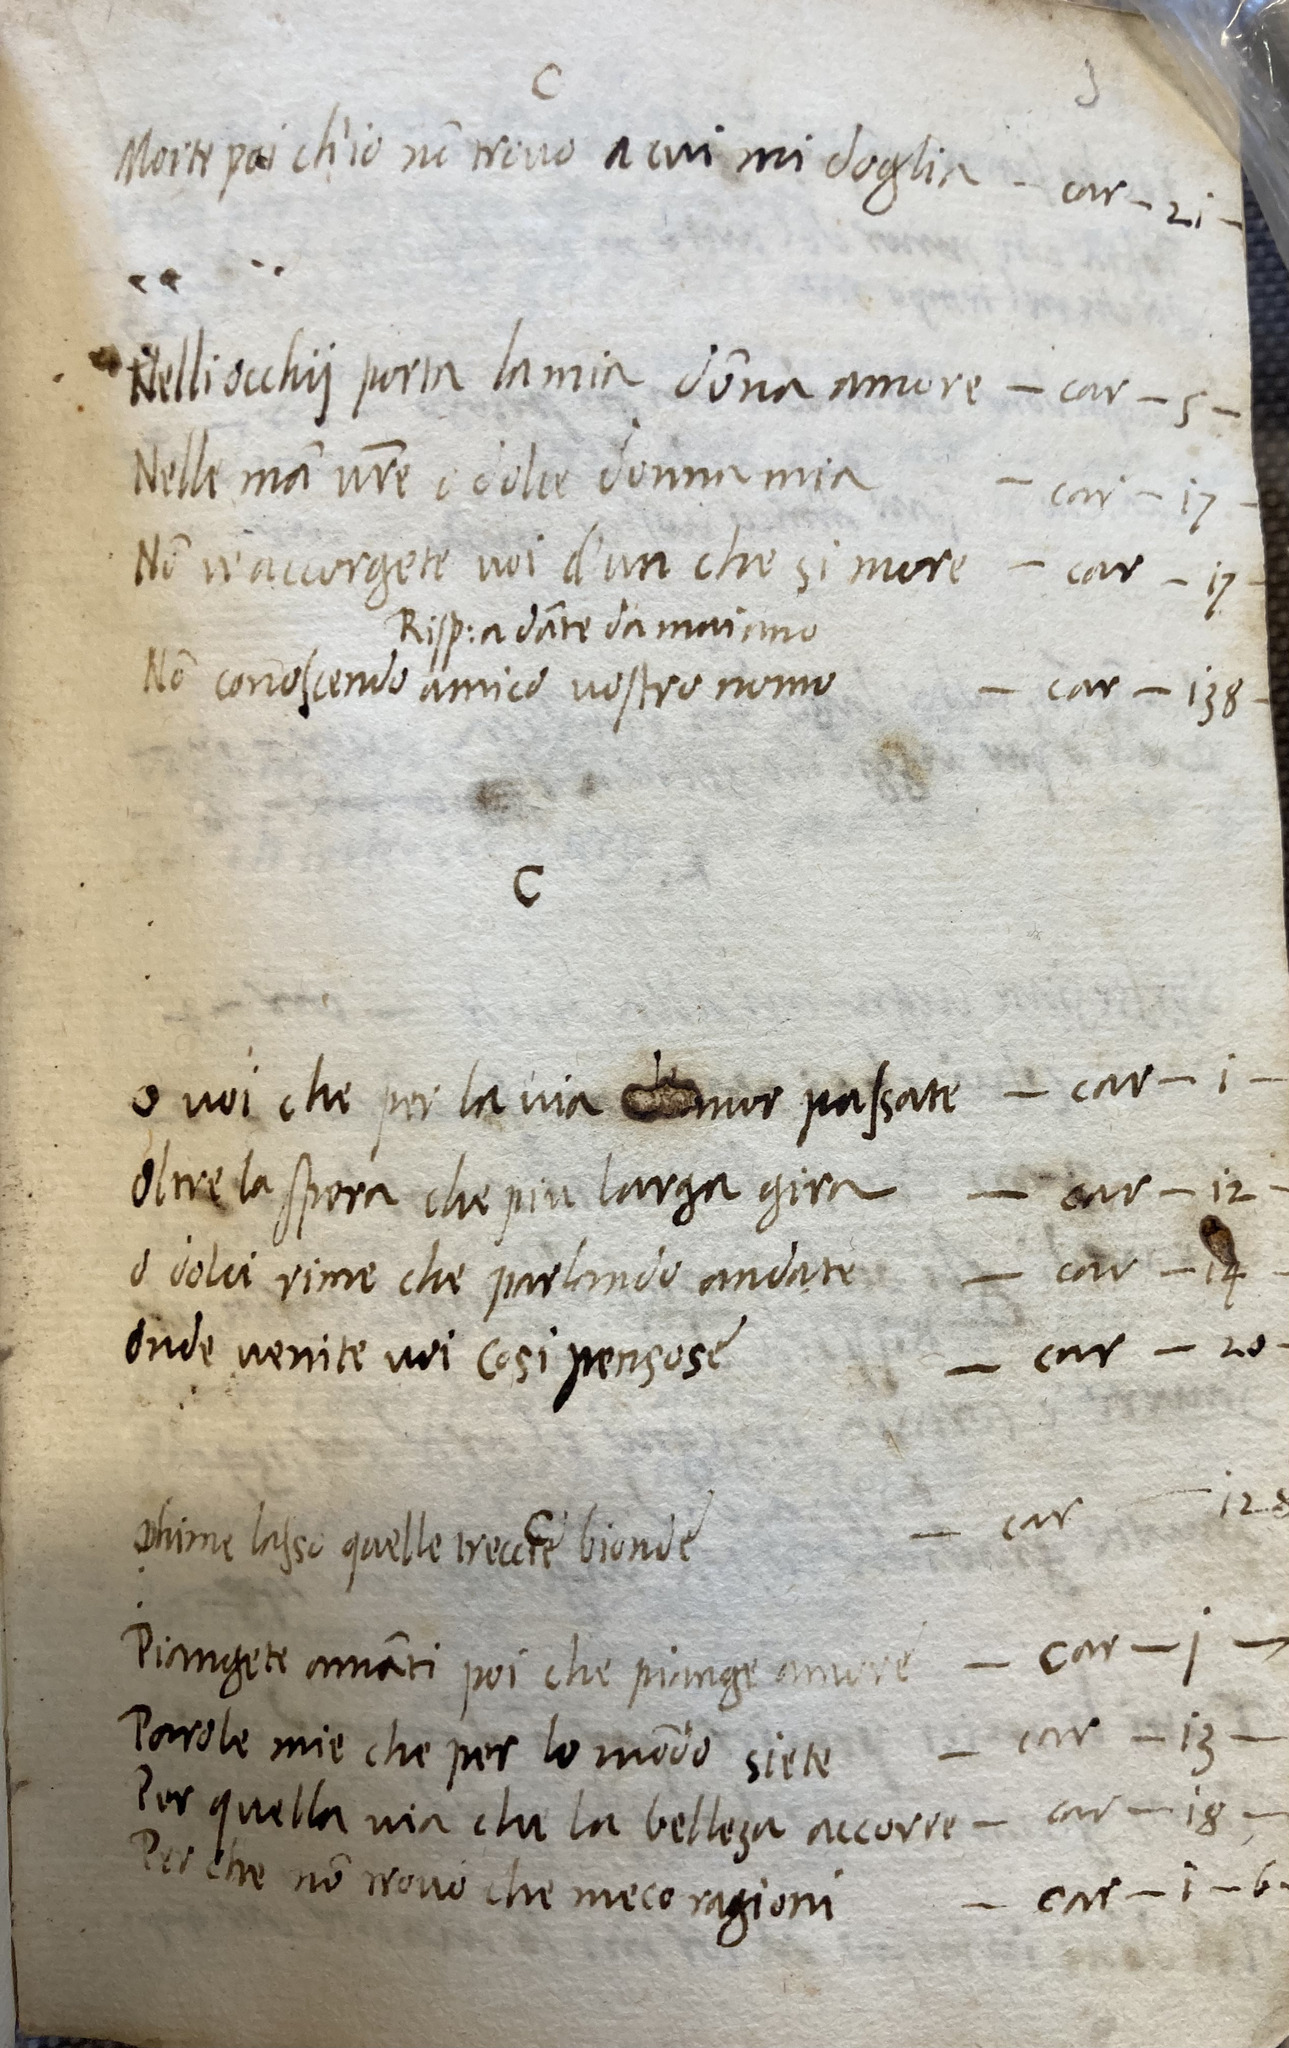 C 3
Morte poi ch'io nō trovo a cui mi doglia - car - 21 -
Nelli occhij porta la mia dōna amore - car - 5 -
Nelle mā vr̄e o dolce donna mia - car - 17 -
Nō v'accorgete voi d'un che si more - car - 17 -
Risp: a dāte da maiano
Nō conoscendo amico vostro nomo - car - 138 -
C
O voi che per la via d'amor passate - car - 1 -
Oltre la spera che piu larga gira - car - 12 -
O dolci rime che parlando andate - car - 14 -
Onde venite voi cosi pensose - car - 20 -
C
Ohime lasso quelle trecce bionde - car 128
Piangete amāti poi che piange amore - car - 1 -
Parole mie che per lo mōdo siete - car - 13 -
Per quella via che la belleza accorre - car - 18 -
Per che nō trovo che meco ragioni - car - 1 - 6 -